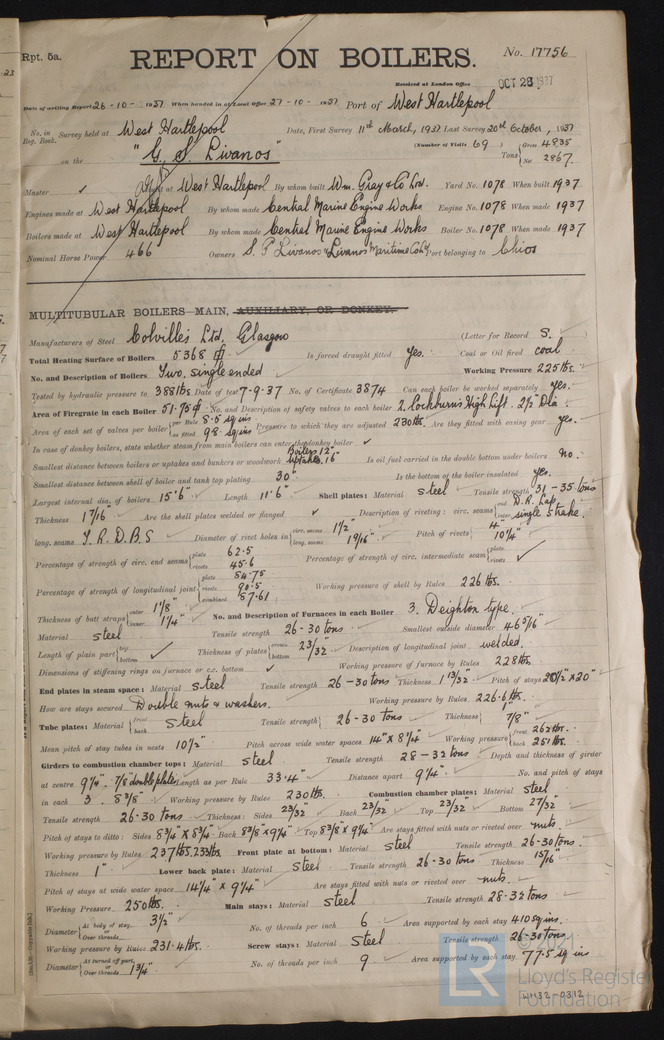 Rpt. 5a.
REPORT ON BOILERS.
No. 17756
Received at London Office OCT 28 1937
Date of writing Report 26-10-1937 When handed in at Local Office 27-10-1937 Port of West Hartlepool
No. in Reg. Book. Survey held at West Hartlepool Date, First Survey 11th March, 1937 Last Survey 20th October, 1937
(Number of Visits 69) Gross 4835
on the "G. S. Livanos" Tons Net 2867
Master ✓ Built at West Hartlepool By whom built Wm. Gray & Co Ltd. Yard No. 1078 When built 1937
Engines made at West Hartlepool By whom made Central Marine Engine Works Engine No. 1078 When made 1937
Boilers made at West Hartlepool By whom made Central Marine Engine Works Boiler No. 1078 When made 1937
Nominal Horse Power 466 Owners S. P. Livanos & Livanos Maritime Co Ld Port belonging to Chios
MULTITUBULAR BOILERS—MAIN, AUXILIARY, OR DONKEY.
Manufacturers of Steel Colvilles Ltd, Glasgow (Letter for Record S.)
Total Heating Surface of Boilers 5368 Is forced draught fitted Yes. Coal or Oil fired coal
No. and Description of Boilers Two, single ended Working Pressure 225 lbs.
Tested by hydraulic pressure to 388 lbs Date of test 7-9-37 No. of Certificate 3874 Can each boiler be worked separately yes.
Area of Firegrate in each Boiler 51.75 No. and Description of safety valves to each boiler 2, Cockburn's High Lift. 2½" Dia.
Area of each set of valves per boiler per Rule 8.5 sq ins as fitted 9.8 sq ins Pressure to which they are adjusted 230 lbs. Are they fitted with easing gear yes.
In case of donkey boilers, state whether steam from main boilers can enter the donkey boiler ✓
Smallest distance between boilers or uptakes and bunkers or woodwork Boilers 12" Uptakes 16" Is oil fuel carried in the double bottom under boilers no.
Smallest distance between shell of boiler and tank top plating 30" Is the bottom of the boiler insulated yes.
Largest internal dia. of boilers 15'6" Length 11'6" Shell plates: Material steel Tensile strength 31-35 tons
Thickness 1 7/16" Are the shell plates welded or flanged ✓ Description of riveting: circ. seams end D.R. Lap. inter single strake.
long. seams T.R.D.B.S Diameter of rivet holes in circ. seams 1½" long. seams 1 9/16" Pitch of rivets 4" 10¼"
Percentage of strength of circ. end seams plate 62.5 rivets 45.6 Percentage of strength of circ. intermediate seam plate rivets ✓
Percentage of strength of longitudinal joint plate 84.75 rivets 90.5 combined 87.61 Working pressure of shell by Rules 226 lbs.
Thickness of butt straps outer 1 1/8" inner 1¼" No. and Description of Furnaces in each Boiler 3. Deighton type.
Material steel Tensile strength 26-30 tons Smallest outside diameter 46 5/16"
Length of plain part top bottom ✓ Thickness of plates crown bottom 23/32" Description of longitudinal joint welded.
Dimensions of stiffening rings on furnace or c.c. bottom ✓ Working pressure of furnace by Rules 228 lbs.
End plates in steam space: Material steel Tensile strength 26-30 tons Thickness 1 13/32" Pitch of stays 20½" x 20"
How are stays secured Double nuts & washers. Working pressure by Rules 226.6 lbs.
Tube plates: Material front back steel Tensile strength 26-30 tons Thickness 1" 7/8"
Mean pitch of stay tubes in nests 10½" Pitch across wide water spaces 14" x 8¼" Working pressure front 262 lbs. back 251 lbs.
Girders to combustion chamber tops: Material steel Tensile strength 28-32 tons Depth and thickness of girder
at centre 9¼" 7/8" double plates Length as per Rule 33.4" Distance apart 9¼" No. and pitch of stays
in each 3. 8 3/8" Working pressure by Rules 230 lbs. Combustion chamber plates: Material steel
Tensile strength 26-30 tons Thickness: Sides 23/32" Back 23/32" Top 23/32" Bottom 27/32"
Pitch of stays to ditto: Sides 8¾" x 8¾" Back 8 3/8 x 9¼" Top 8 3/8 x 9¼" Are stays fitted with nuts or riveted over nuts.
Working pressure by Rules 237 lbs. 233 lbs. Front plate at bottom: Material steel Tensile strength 26-30 tons.
Thickness 1" Lower back plate: Material steel Tensile strength 26-30 tons Thickness 15/16"
Pitch of stays at wide water space 14¼" x 9¼" Are stays fitted with nuts or riveted over nuts.
Working Pressure 250 lbs. Main stays: Material steel Tensile strength 28-32 tons.
Diameter At body of stay, or Over threads 3½" No. of threads per inch 6 Area supported by each stay 410 sq ins.
Working pressure by Rules 231.4 lbs. Screw stays: Material steel Tensile strength 26-30 tons.
Diameter At turned off part, or Over threads 1¾" No. of threads per inch 9 Area supported by each stay 77.5 sq ins
LR
© 2021
Lloyd's Register
Foundation
W1132-0312